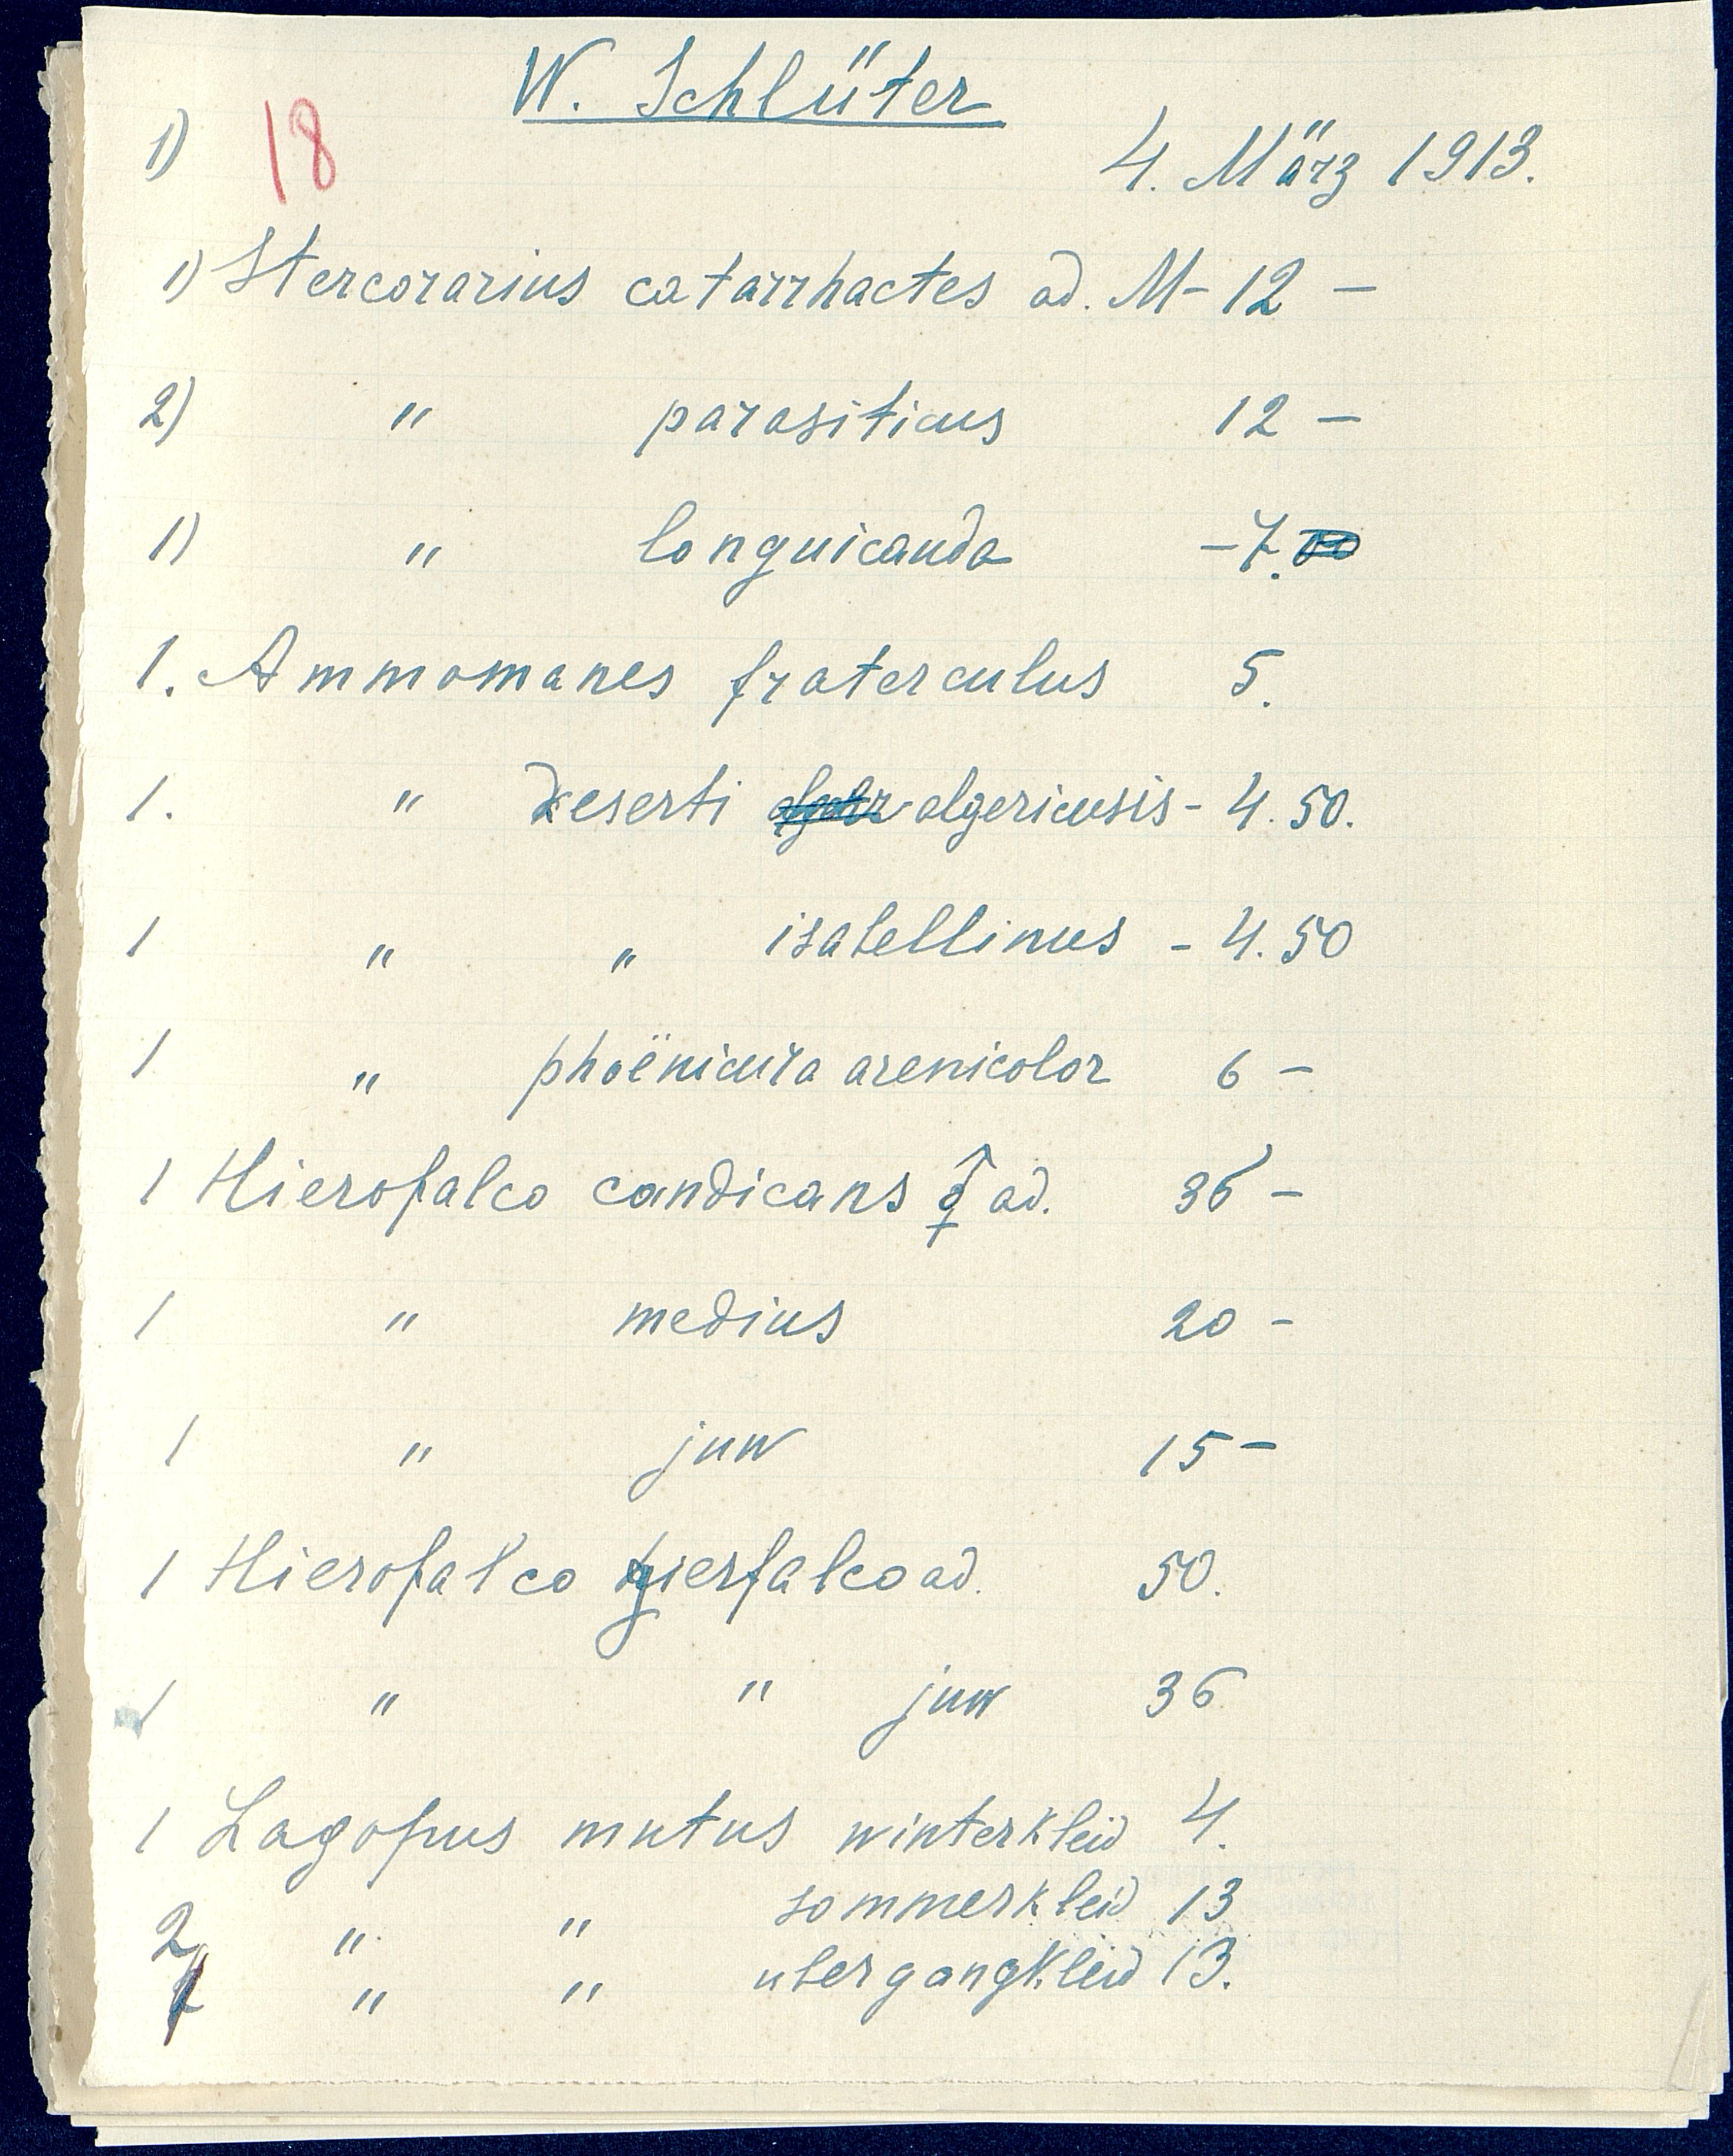 W. Schlüter
1) 18 4. März 1913.
1) Stercorarius catarrhactes ad. M- 12 —
2) " parasiticus 12 —
1) " longuicauda — 7.
1. Ammomanes fraterculus 5.
1. " deserti algeriensis - 4.50.
1 " " isabellinus - 4.50
1 " phoënicura arenicolor 6 —
1 Hierofalco candicans ad. 36 —
1 " medius 20 —
1 " juv 15 —
1 Hierofalco gierfalco ad. 50.
1 " " juv 36
1 Lagopus mutus winterkleid 4.
2 " " sommerkleid 13
1 " " ubergangkleid 13.